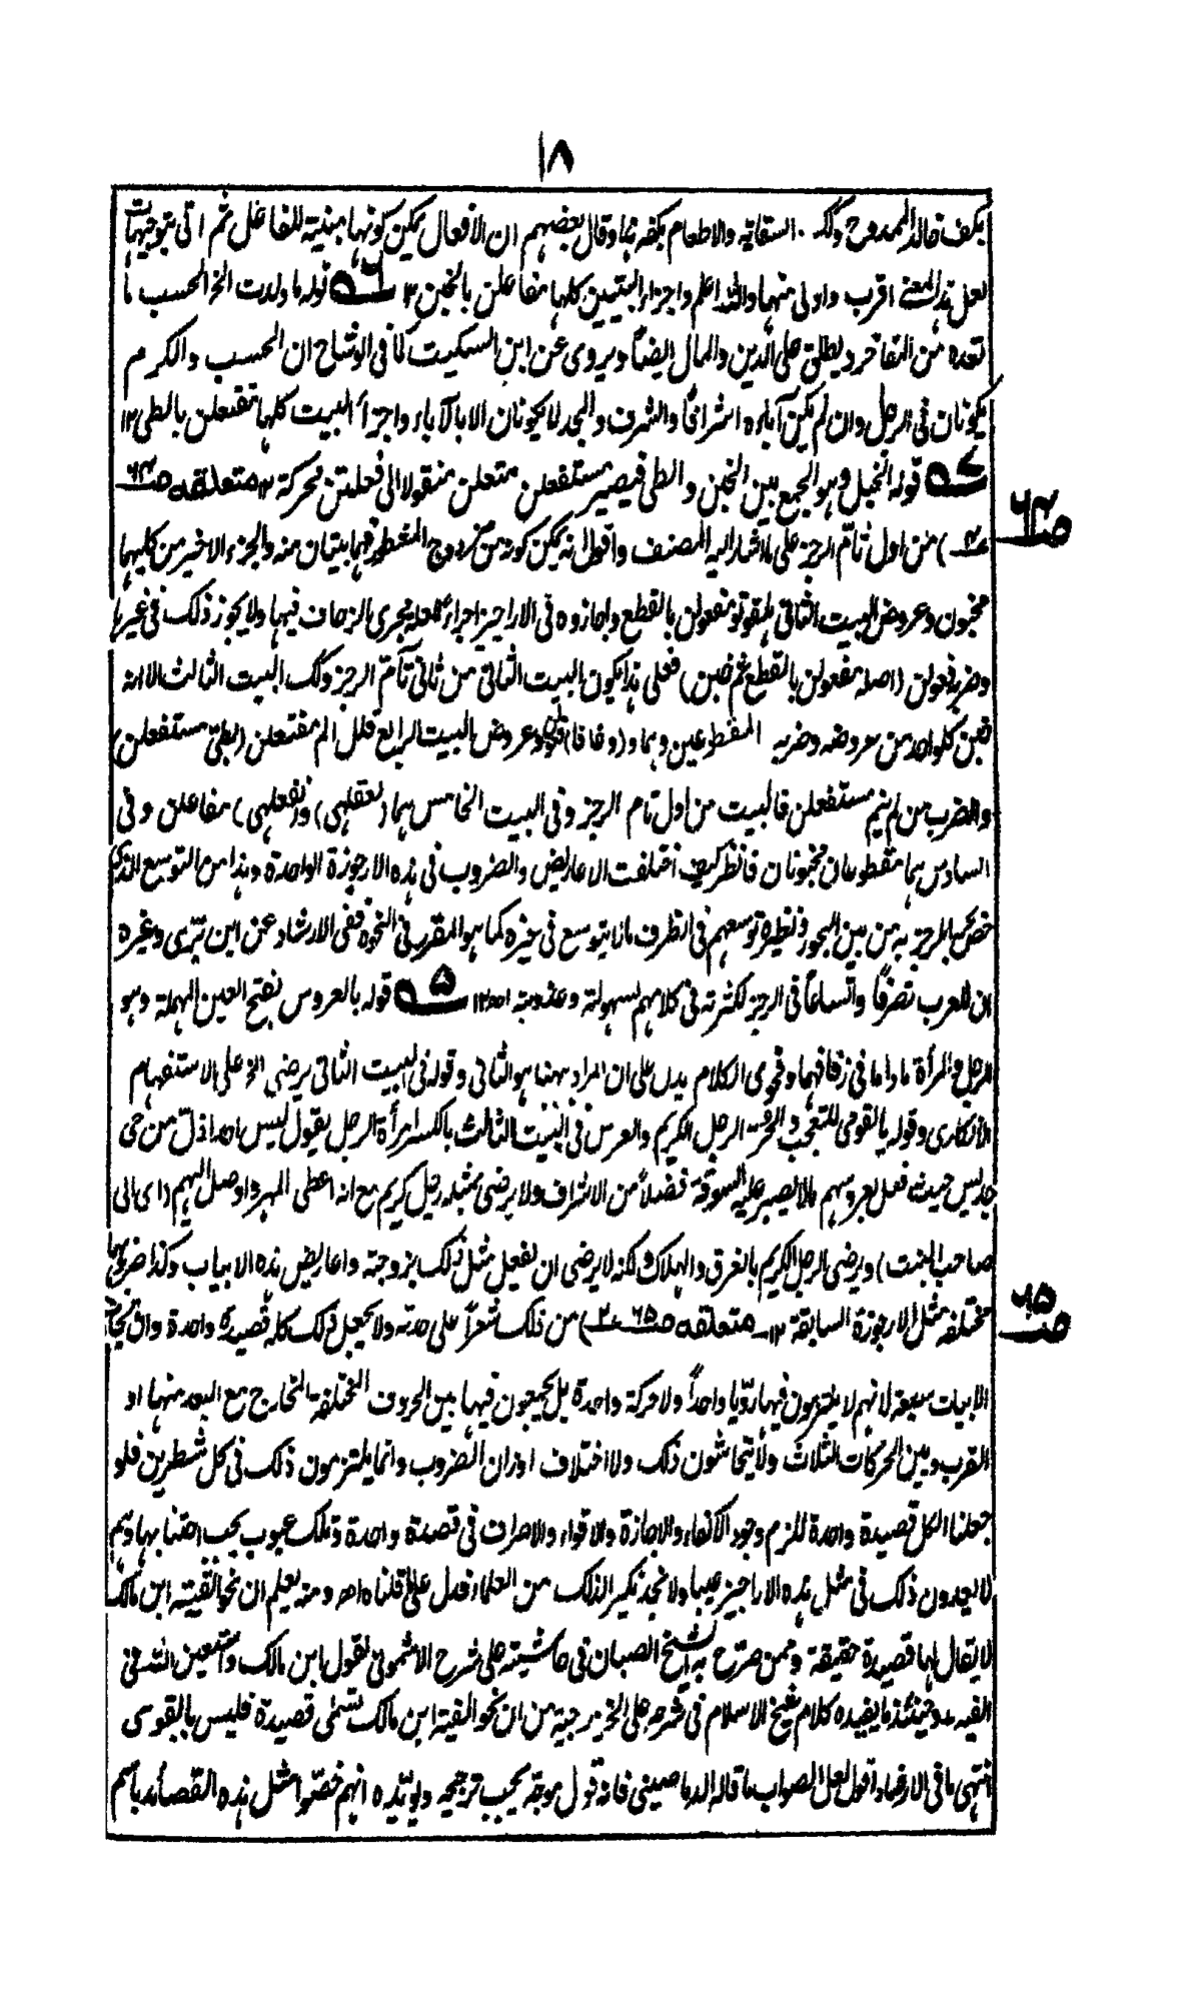 ١٨
بكف خالد الممدوح وكك السقاية والاطعام بكفه ثما وقال بعضهم ان الأفعال يمكن كونها مبنية للفاعل ثم اتى بتوجيهات
لعل هذا المعنى اقرب واولى منها والله اعلم واجزاء البيتين كلها مفاعلن بالخبن ١٢ قوله ما ولدت الخ الحسب ما
تعده من التفاخر ويطلق على الدين والمال ايضاً ويروى عن ابن السكيت كما فى الوشاح ان الحسب والكرم
يكونان فى الرجل وان لم يكن آباءه اشرافا والشرف والمجد لا يكونان الا بالآباء واجزأ البيت كلها مفتعلن بالطى ١٢
قوله الخبل وهو الجمع بين الخبن والطى فيصير مستفعلن متعلن منقولا الى فعلتن محركة ١٢ متعلقه صـ٦٤
صـ٦٤
من اول تامّ الرجز على ما اشار اليه المصنف واقول انه يمكن كونه من مزدوج المشطور فهما بيتان منه والجزء الاخير من كليهما
مخبون وعروض البيت الثانى مفعولن بالقطع واجازوه فى الاراجيز اجراء للعلة مجرى الزحاف فيها ولا يجوز ذلك فى غيرها
وضربه فعولن (اصله مفعولن بالقطع ثم خبن) فعلى هذا يكون البيت الثانى من ثانى تامّ الرجز وكك البيت الثالث الا انه
خبن كل واحد من عروضه وضربه المقطوعين وهما (وفاقا) وعروض البيت الرابع مفتعلن (بطىّ مستفعلن)
والضرب من لم ينم مستفعلن فالبيت من اول تام الرجز وفى البيت الخامس هما (بعقلهى) و(بفعلهى) مفاعلن وفى
السادس هما مقطوعان مخبونان فانظر كيف اختلفت الاعاريض والضروب فى هذه الارجوزة الواحدة وهذا من التوسع الذى
خصّ الرجز به من بين البحور ونظيره توسعهم فى الظرف ما لا يتوسع فى غيره كما هو المقرر فى النحو ففى الارشاد عن ابن برّى وغيره
ان للعرب تصرفًا واتساعاً فى الرجز لكثرته فى كلامهم لسهولته وعذوبته اھ ١٢ ٥ قوله بالعروس بفتح العين المهملة وهو
الرجل والمرأة ما داما فى زفافهما وفحوى الكلام يدل على ان المراد ههنا هو الثانى وقوله فى البيت الثانى يرضى الخ على الاستفهام
الانكارى وقوله يا لقومى للتعجب والحرّ الرجل الكريم والعرس فى البيت الثالث بالكسر امرأة الرجل يقول ليس احد اذلّ من حى
جديس حيث فعل بعروسهم ما لا يصبر عليه السوقة فضلاً من الاشراف ولا يرضى بمثله رجل كريم مع انه اعطى المهر واوصل اليهم (اى الى
صاحب البنت) ويرضى الرجل الكريم بالغرق والهلاك ولكنه لا يرضى ان يفعل مثل ذلك بزوجته واعاريض هذه الابيات وكذا ضروبها
مختلفة مثل الارجوزة السابقة ١٢ متعلقه صـ٦٥ ٢ـ) من ذلك شعراً على حدته ولا يجعل ذلك كله قصيدة واحدة وان تجاوز
صـ٦٥
الابيات سبعة لانهم لا يلتزمون فيها رويا واحداً ولا حركة واحدة بل يجمعون فيها بين الحروف المختلفة المخارج مع البعد منها او
القرب وبين الحركات الثلاث ولا يتحاشون ذلك ولا اختلاف اوزان الضروب وانما يلتزمون ذلك فى كل شطرين فلو
جعلنا الكل قصيدة واحدة للزم وجود الاكفاء والاجازة والاقواء والاصراف فى قصيدة واحدة وتلك عيوب يجب اجتنابها وهم
لا يعدون ذلك فى مثل هذه الاراجيز عيبا ولا نجد نكيرا لذلك من العلماء فدل على ما قلناه اھ ومنه يعلم ان نحو الفية ابن مالك
لا يقال لها قصيدة حقيقة وممن صرّح به الشيخ الصبان فى حاشيته على شرح الاشمونى لقول ابن مالك واستعين الله فى
الفيه وحينئذ ما يفيده كلام شيخ الاسلام فى شرحه على الخزرجية من ان نحو الفية ابن مالك تسمّى قصيدة فليس بالقوى
انتهى ما فى الارشاد اقول لعل الصواب ما قاله الدمامينى فانه قول موجّه يجب ترجيحه ويؤيّده انهم خصّوا مثل هذه القصائد باسم